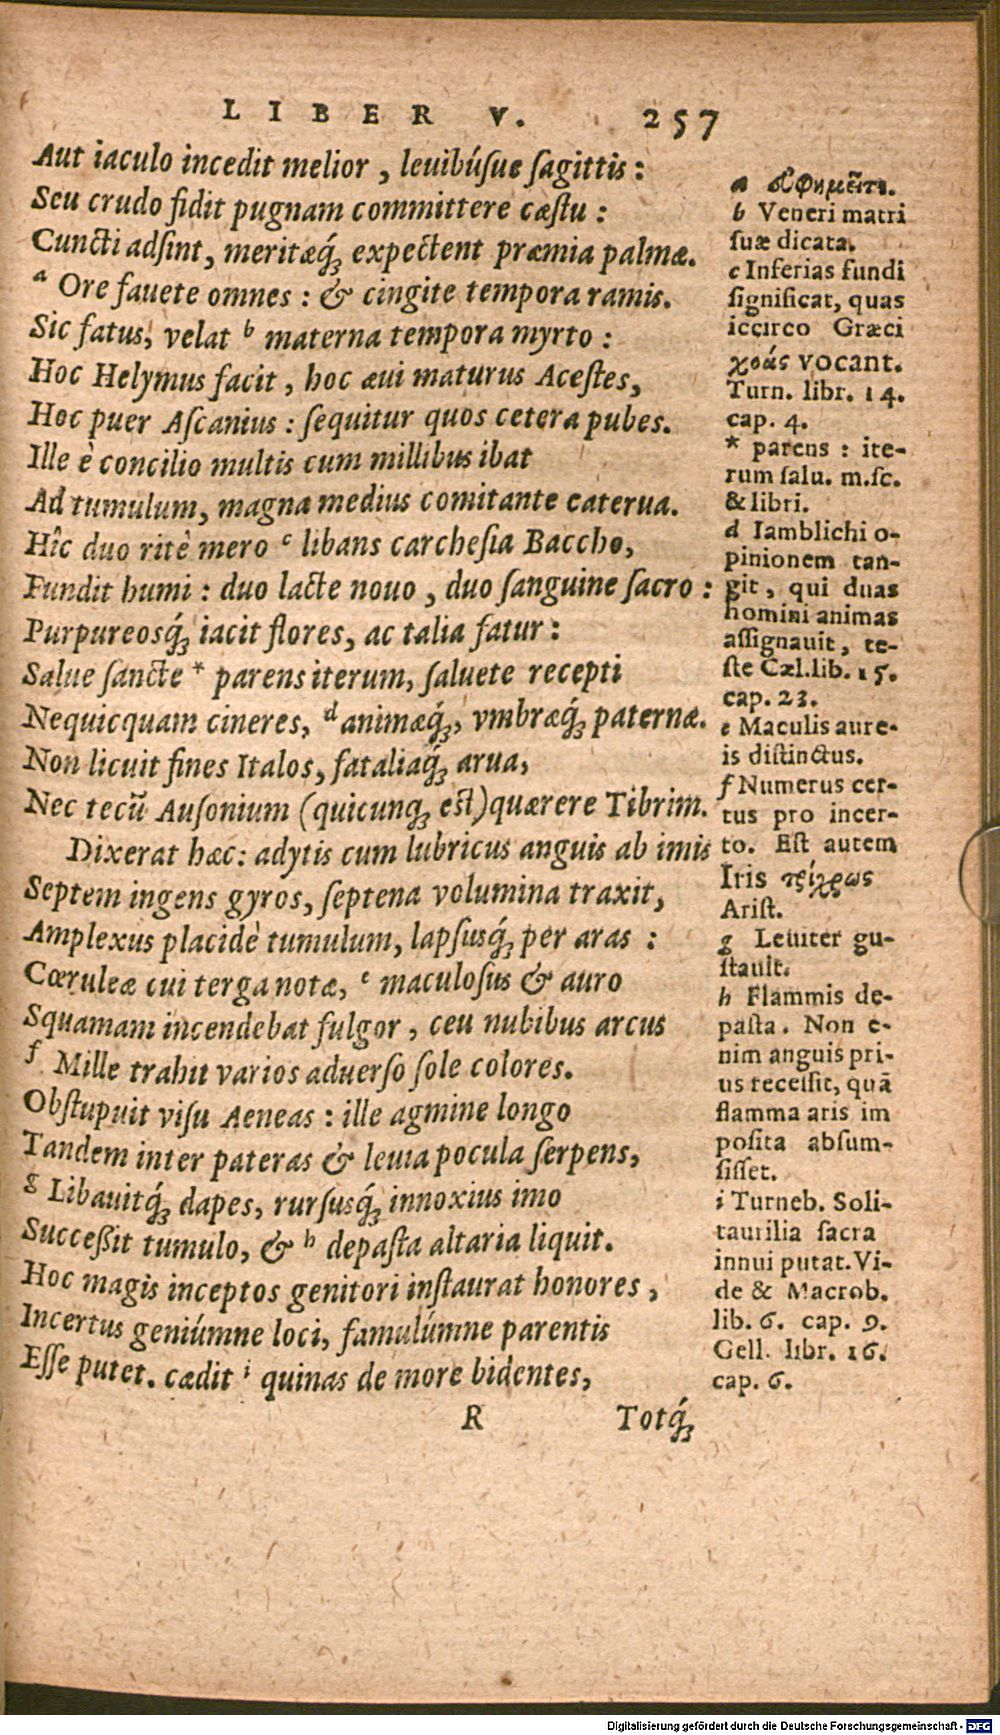 LIBER V. 257
Aut iaculo incedit melior, leuibúsue ſagittis:
Seu crudo fidit pugnam committere cæstu:
Cuncti adſint, meritæq́; expectent præmia palmæ.
a Ore fauete omnes: & cingite tempora ramis.
Sic fatus, velat b materna tempora myrto:
Hoc Helymus facit, hoc æui maturus Acestes,
Hoc puer Aſcanius: ſequitur quos cetera pubes.
Ille è concilio multis cum millibus ibat
Ad tumulum, magna medius comitante caterua.
Hîc duo ritè mero c libans carcheſia Baccho,
Fundit humi: duo lacte nouo, duo ſanguine ſacro:
Purpureosq́; iacit flores, ac talia fatur:
Salue ſancte * parens iterum, ſaluete recepti
Nequicquam cineres, d animæq́;, vmbræq́; paternæ.
Non licuit fines Italos, fataliaq́; arua,
Nec tecũ Auſonium (quicunq; est) quærere Tibrim.
Dixerat hæc: adytis cum lubricus anguis ab imis
Septem ingens gyros, ſeptena volumina traxit,
Amplexus placidè tumulum, lapſusq́; per aras:
Cœruleæ cui terga notæ, e maculoſus & auro
Squamam incendebat fulgor, ceu nubibus arcus
f Mille trahit varios aduerſo ſole colores.
Obſtupuit viſu Aeneas: ille agmine longo
Tandem inter pateras & leuia pocula ſerpens,
g Libauitq́; dapes, rurſusq́; innoxius imo
Succeßit tumulo, & h depaſta altaria liquit.
Hoc magis inceptos genitori inſtaurat honores,
Incertus geniúmne loci, famulúmne parentis
Eſſe putet. cædit i quinas de more bidentes,
R Totq́;
b Veneri matri
ſuæ dicata.
c Inferias fundi
ſignificat, quas
iccirco Græci
χοάς vocant.
Turn. libr. 14.
cap. 4.
* parens: ite-
rum ſalu. m.ſc.
& libri.
d Iamblichi o-
pinionem tan-
git, qui duas
homini animas
aſſignauit, te-
ſte Cæl. lib. 15.
cap. 23.
e Maculis aure-
is diſtinctus.
f Numerus cer-
tus pro incer-
to. Eſt autem
Iris τρίχρως
Ariſt.
g Leuiter gu-
ſtauit.
h Flammis de-
paſta. Non e-
nim anguis pri-
us receſſit, quã
flamma aris im
poſita abſum-
ſiſſet.
i Turneb. Soli-
taurilia ſacra
innui putat. Vi-
de & Macrob.
lib. 6. cap. 9.
Gell. libr. 16.
cap. 6.
Digitalisierung gefördert durch die Deutsche Forschungsgemeinschaft - DFG